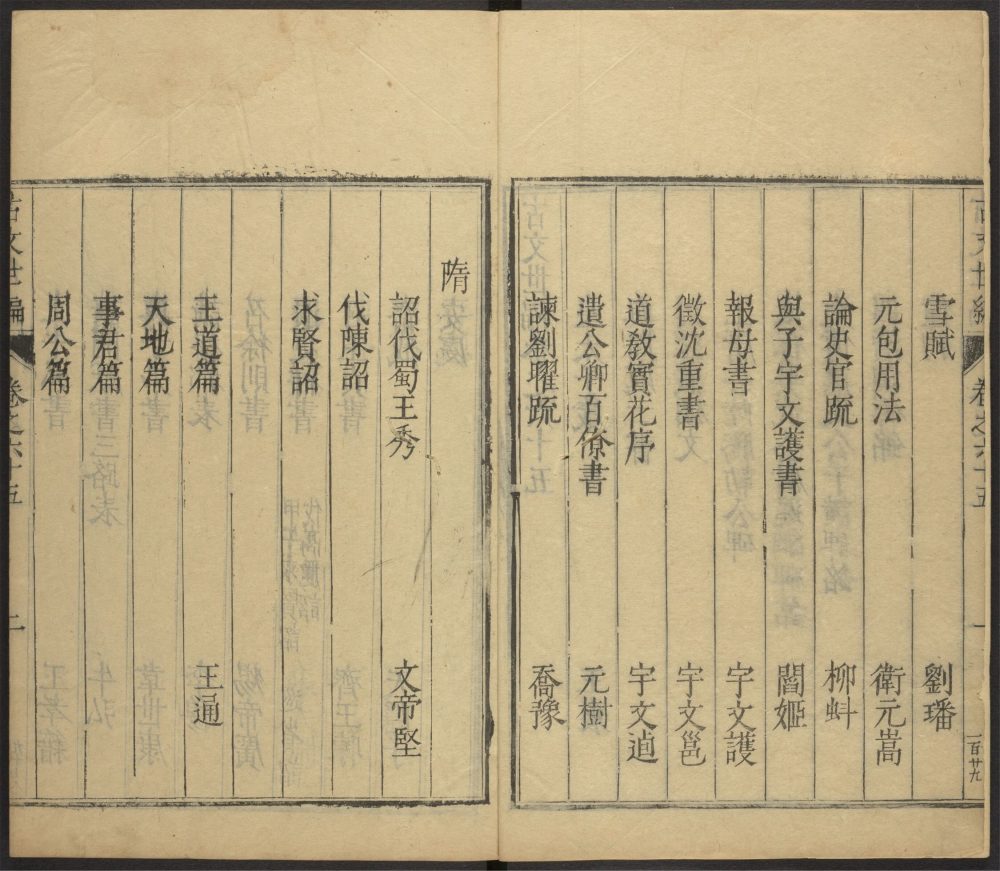 古文世編 卷之六十五 一 一百廿九
雪賦 劉璠
元包用法 衛元嵩
論史官疏 柳蚪
與子宇文護書 閻姬
報母書 宇文護
徵沈重書 宇文邕
道教實花序 宇文逌
遣公卿百僚書 元樹
諫劉曜疏 喬豫
隋
詔伐蜀王秀 文帝堅
伐陳詔
求賢詔
王道篇 王通
天地篇
事君篇
周公篇
古文世編 卷之六十五 二